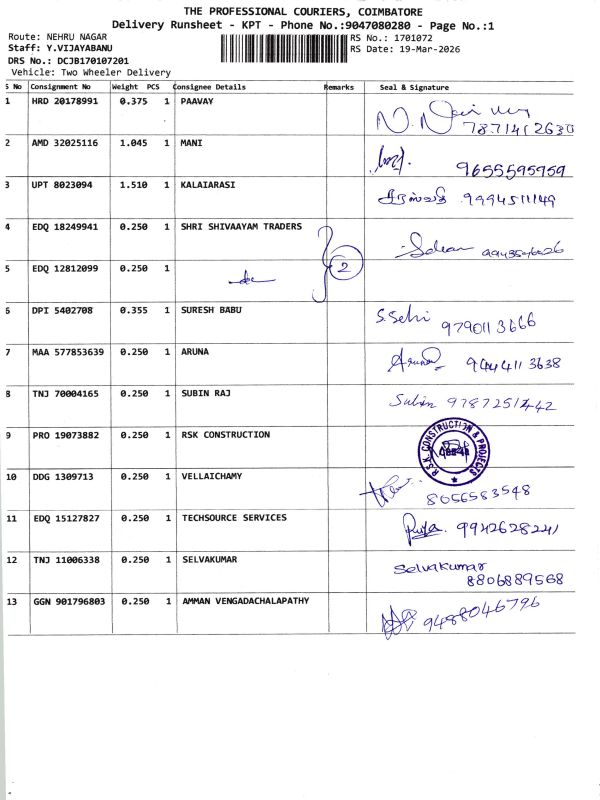 THE PROFESSIONAL COURIERS, COIMBATORE
Delivery Runsheet - KPT - Phone No.:9047080280 - Page No.:1
Route: NEHRU NAGAR RS No.: 1701072
Staff: Y.VIJAYABANU RS Date: 19-Mar-2026
DRS No.: DCJB170107201
Vehicle: Two Wheeler Delivery
S No Consignment No Weight PCS Consignee Details Remarks Seal & Signature
1 HRD 20178991 0.375 1 PAAVAY
7871412630
2 AMD 32025116 1.045 1 MANI 9655595959
3 UPT 8023094 1.510 1 KALAIARASI 9994511149
4 EDQ 18249941 0.250 1 SHRI SHIVAAYAM TRADERS
5 EDQ 12812099 0.250 1 2
6 DPI 5402708 0.355 1 SURESH BABU S.Selvi 9790113666
7 MAA 577853639 0.250 1 ARUNA Aruna 9444113638
8 TNJ 70004165 0.250 1 SUBIN RAJ Subin
9 PRO 19073882 0.250 1 RSK CONSTRUCTION R.S.K. CONSTRUCTION & PROJECTS
10 DDG 1309713 0.250 1 VELLAICHAMY 8056583548
11 EDQ 15127827 0.250 1 TECHSOURCE SERVICES 9942628241
12 TNJ 11006338 0.250 1 SELVAKUMAR Selvakumar
8806889568
13 GGN 901796803 0.250 1 AMMAN VENGADACHALAPATHY 9488046796